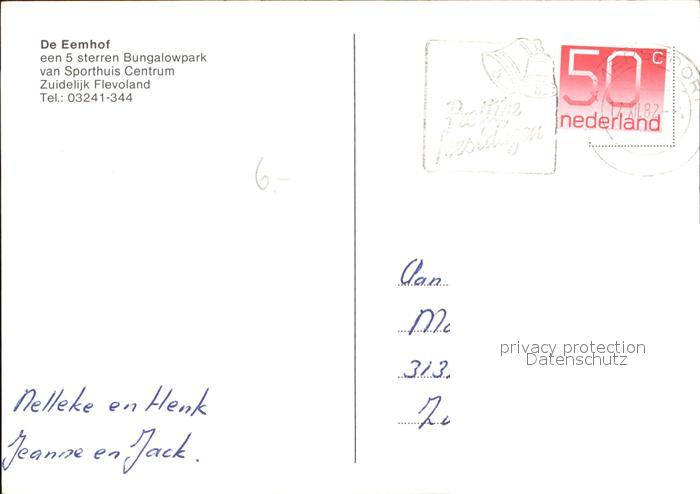 De Eemhof
een 5 sterren Bungalowpark
van Sporthuis Centrum
Zuidelijk Flevoland
Tel.: 03241-344
Prettige
feestdagen
50 c
nederland
6.-
Aan
privacy protection
Datenschutz
313
Nelleke en Henk
Jeanne en Jack.